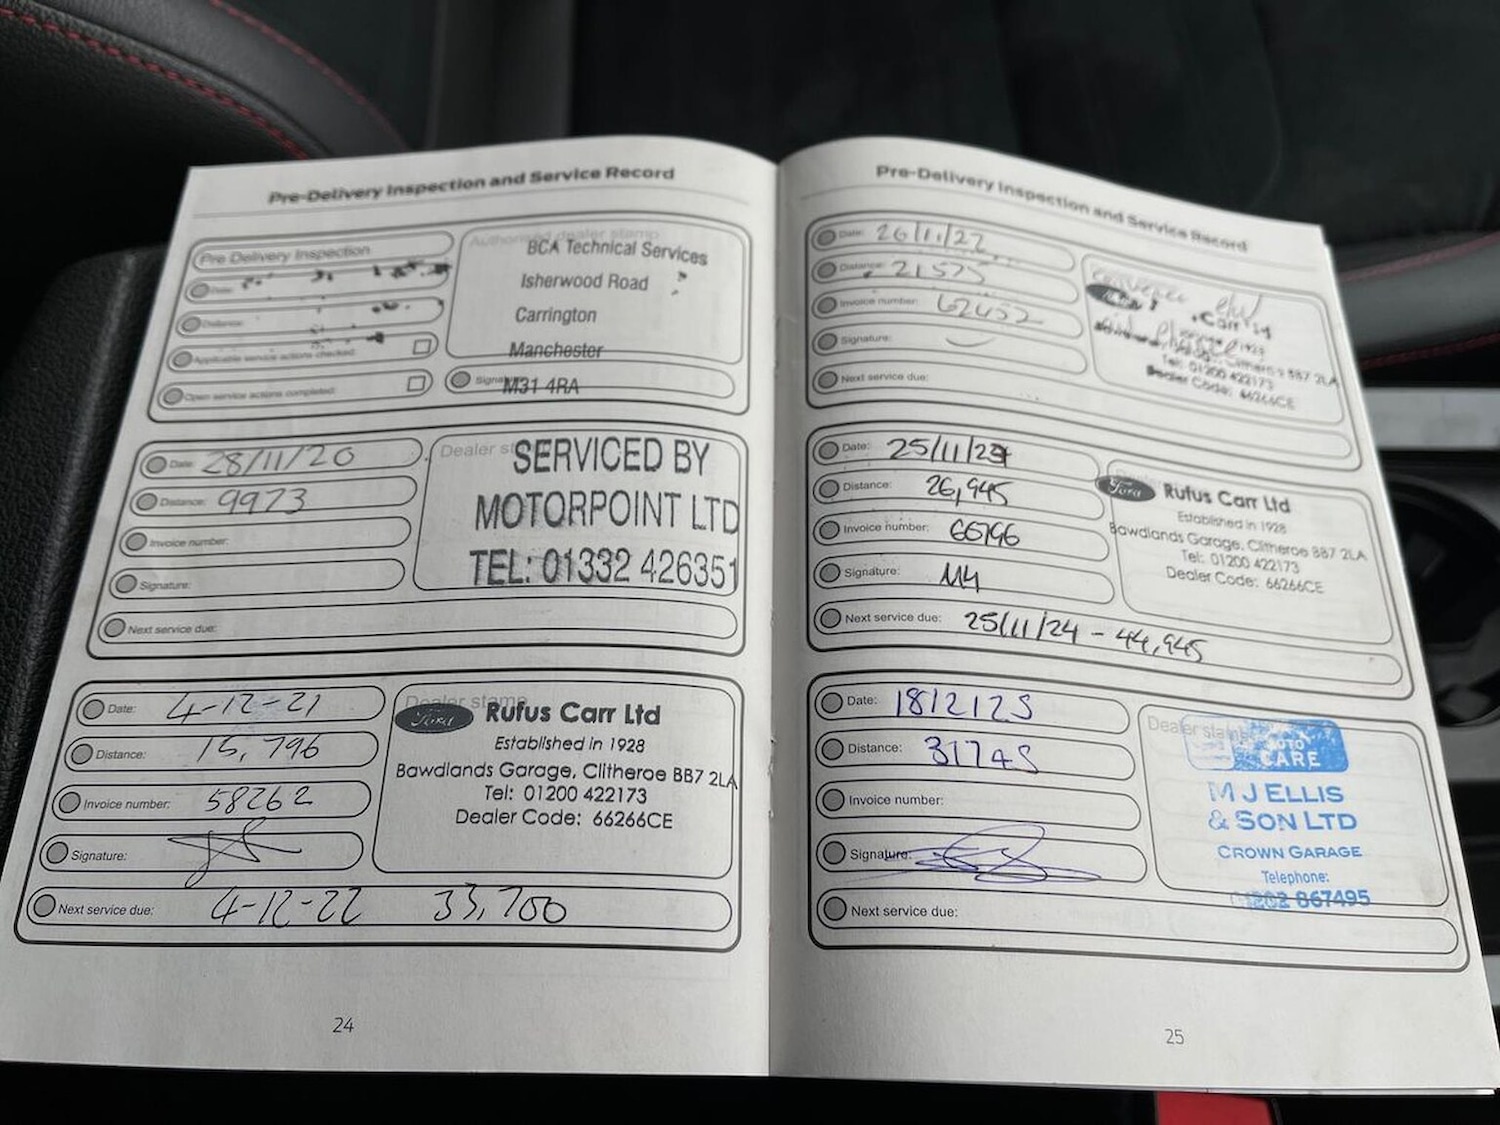 Pre-Delivery Inspection and Service Record
Pre Delivery Inspection
Date:
Distance:
Applicable service actions checked:
Open service actions completed:
Authorised dealer stamp
BCA Technical Services
Isherwood Road
Carrington
Manchester
M31 4RA
Date: 28/11/20
Distance: 9973
Invoice number:
Signature:
Next service due:
SERVICED BY
MOTORPOINT LTD
TEL: 01332 426351
Date: 4-12-21
Distance: 15,796
Invoice number: 58262
Signature:
Next service due: 4-12-22 33,700
Dealer stamp
Ford Rufus Carr Ltd
Established in 1928
Bawdlands Garage, Clitheroe BB7 2LA
Tel: 01200 422173
Dealer Code: 66266CE
24
Pre-Delivery Inspection and Service Record
Date: 26/11/22
Distance: 21575
Invoice number: 62452
Signature:
Next service due:
Carr
1928
Clitheroe BB7 2LA
Tel: 01200 422173
Dealer Code: 66266CE
Date: 25/11/23
Distance: 26,945
Invoice number: 66796
Signature:
Next service due: 25/11/24 - 44,945
Ford Rufus Carr Ltd
Established in 1928
Bawdlands Garage, Clitheroe BB7 2LA
Tel: 01200 422173
Dealer Code: 66266CE
Date: 18/2/25
Distance: 31745
Invoice number:
Signature:
Next service due:
Dealer stamp
CARE
M J ELLIS
& SON LTD
CROWN GARAGE
Telephone:
867495
25